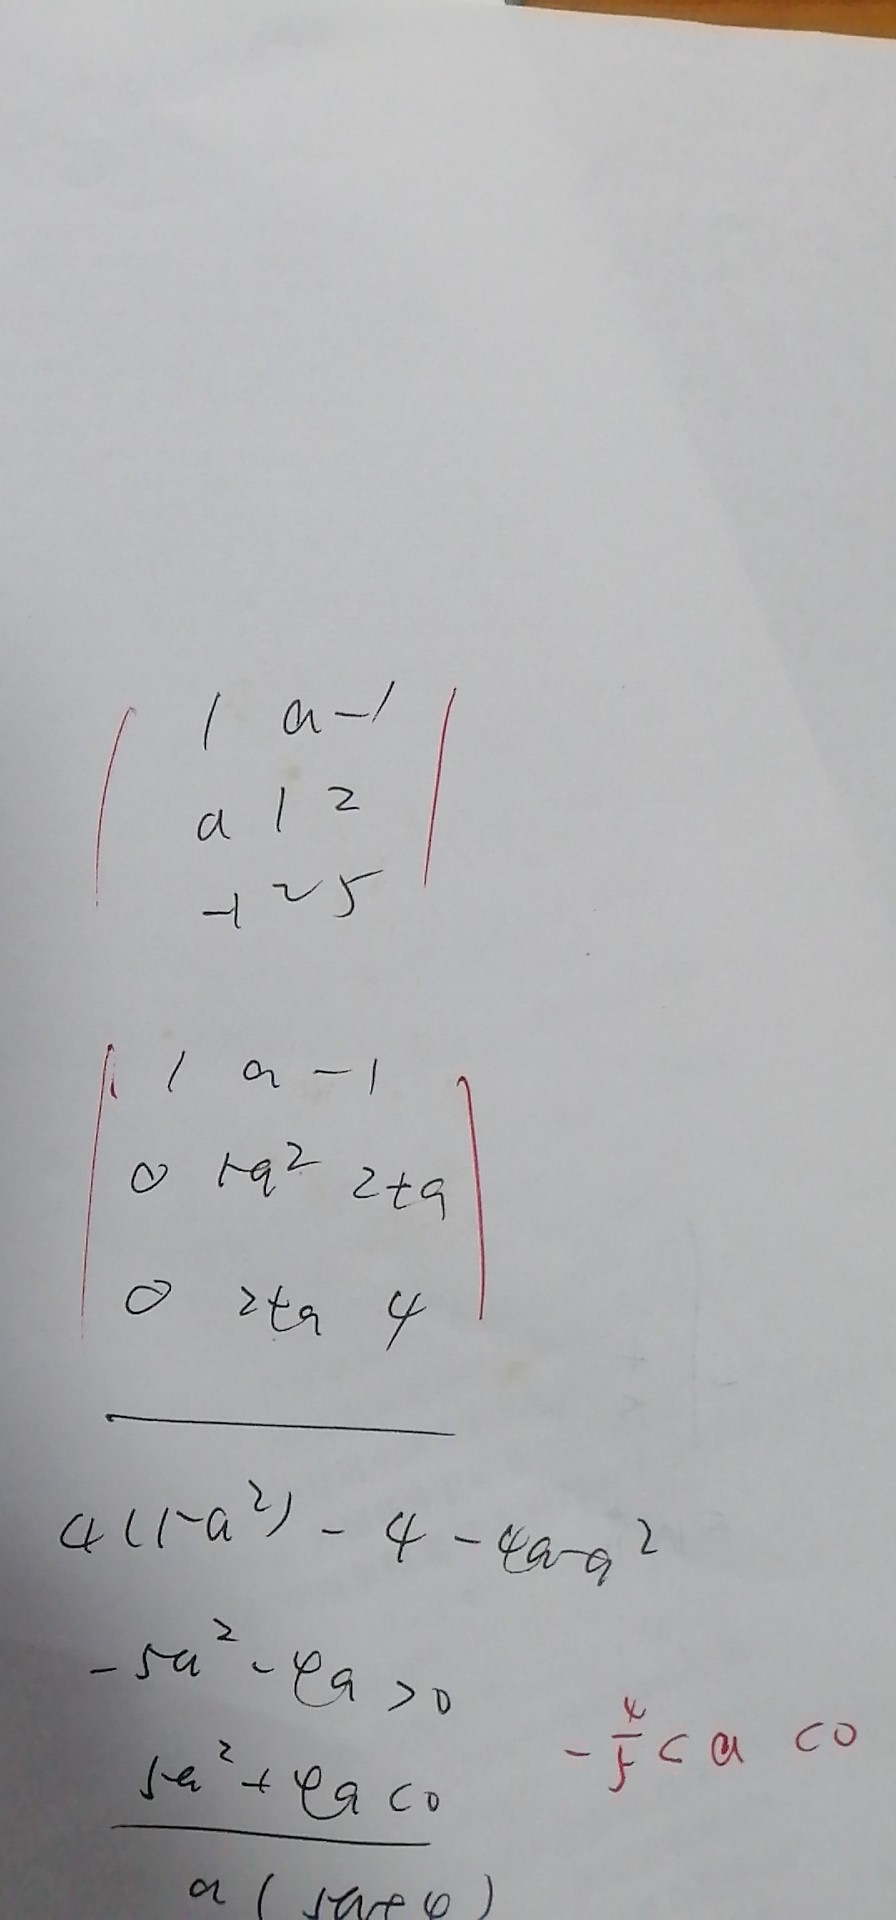 | 1 a -1 |
| a 1 2 |
| -1 2 5 |
| 1 a -1 |
| 0 1-a² 2+a |
| 0 2+a 4 |
4(1-a²) - 4 - 4a-a²
-5a² - 4a > 0
5a² + 4a < 0
-4/5 < a < 0
a(5a+4)